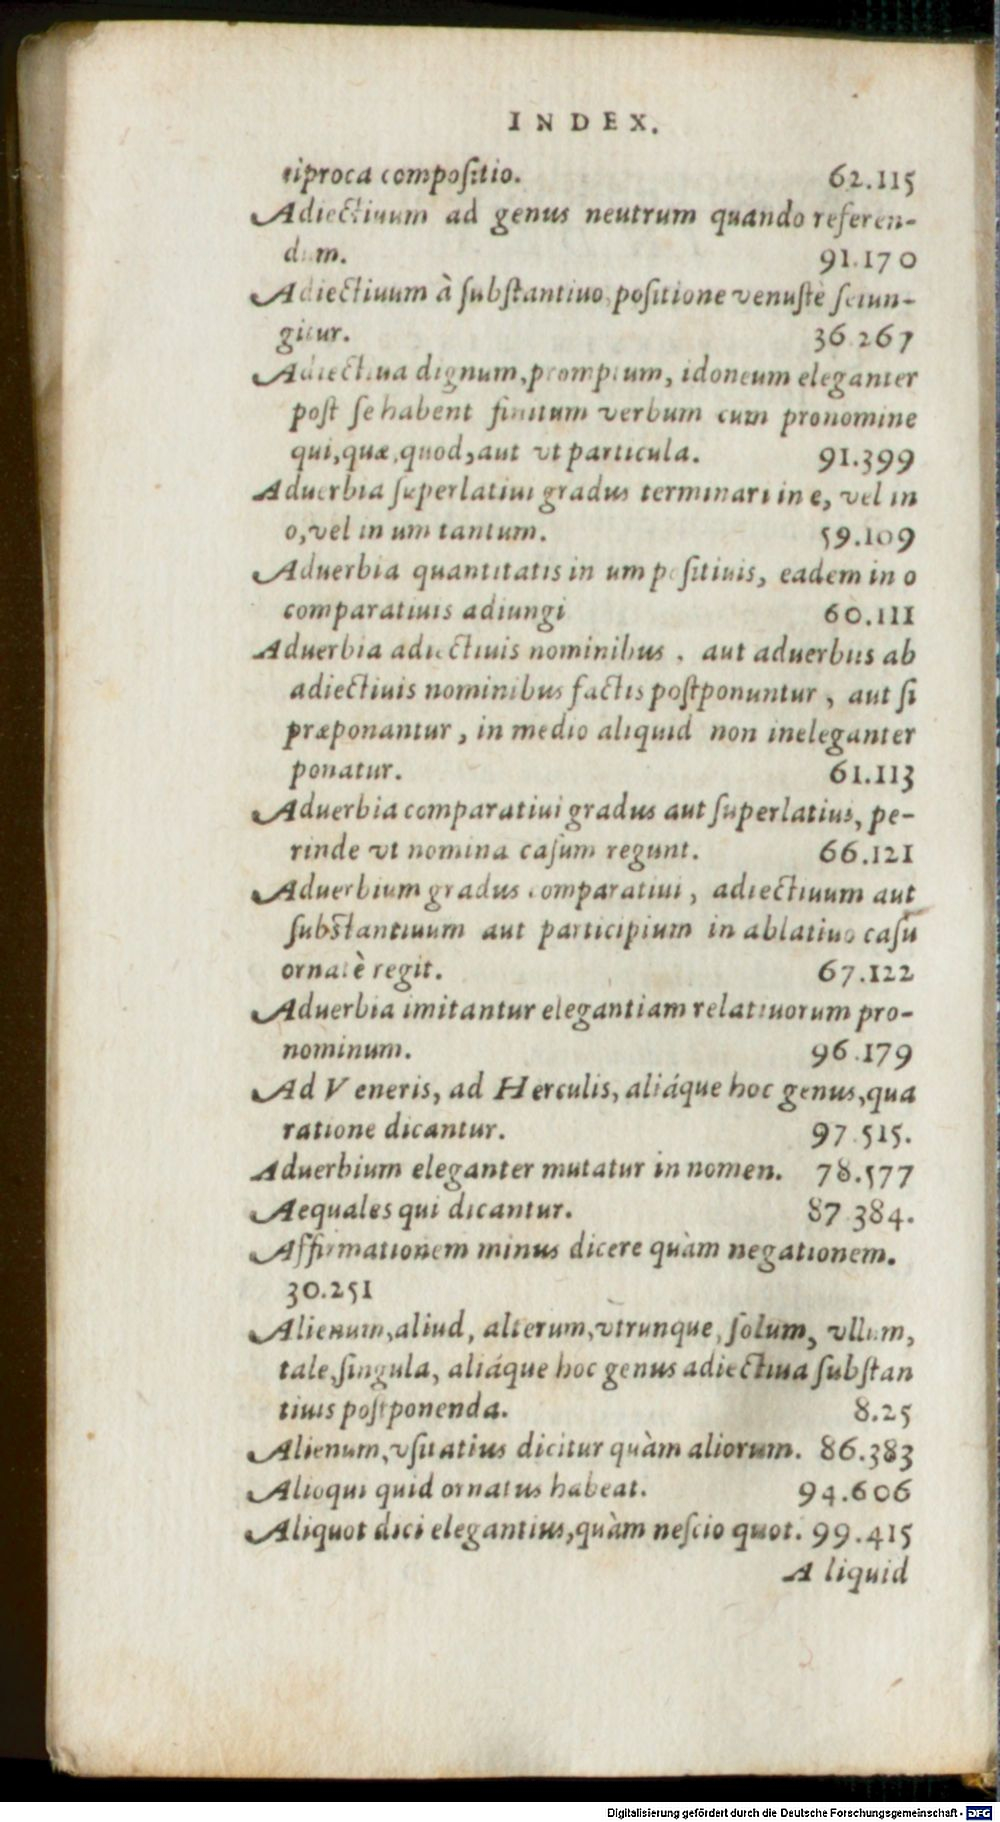 INDEX.
ciproca compoſitio. 62.115
Adiectiuum ad genus neutrum quando referen-
dum. 91.170
Adiectiuum à ſubſtantiuo poſitione venuſtè ſeiun-
gitur. 36.267
Adiectiua dignum, promptum, idoneum eleganter
poſt ſe habent finitum verbum cum pronomine
qui, quæ, quod, aut vt particula. 91.399
Aduerbia ſuperlatiui gradus terminari in e, vel in
o, vel in um tantum. 59.109
Aduerbia quantitatis in um poſitiuis, eadem in o
comparatiuis adiungi 60.111
Aduerbia adiectiuis nominibus, aut aduerbiis ab
adiectiuis nominibus factis poſtponuntur, aut ſi
præponantur, in medio aliquid non ineleganter
ponatur. 61.113
Aduerbia comparatiui gradus aut ſuperlatiui, pe-
rinde vt nomina caſum regunt. 66.121
Aduerbium gradus comparatiui, adiectiuum aut
ſubſtantiuum aut participium in ablatiuo caſu
ornatè regit. 67.122
Aduerbia imitantur elegantiam relatiuorum pro-
nominum. 96.179
Ad Veneris, ad Herculis, aliáque hoc genus, qua
ratione dicantur. 97.515.
Aduerbium eleganter mutatur in nomen. 78.577
Aequales qui dicantur. 87.384.
Affirmationem minus dicere quàm negationem.
30.251
Alienum, aliud, alterum, vtrunque, ſolum, vllum,
tale, ſingula, aliáque hoc genus adiectiua ſubſtan
tiuis poſtponenda. 8.25
Alienum, vſitatius dicitur quàm aliorum. 86.383
Alioqui quid ornatus habeat. 94.606
Aliquot dici elegantius, quàm neſcio quot. 99.415
Aliquid
Digitalisierung gefördert durch die Deutsche Forschungsgemeinschaft - DFG